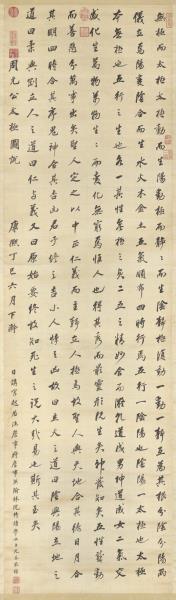 無極而太極太極動而生陽動極而靜靜而生陰靜極復動一動一靜互為其根分陰分陽兩
儀立焉陽變陰合而生水火木金土五氣順布四時行焉五行一陰陽也陰陽一太極也太極
本無極也五行之生也各一其性無極之真二五之精妙合而凝乾道成男坤道成女二氣交
感化生萬物萬物生〻而變化無窮焉惟人也得其秀而最靈形既生矣神發知矣五性感動
而善惡分萬事出矣聖人定之以中正仁義而主靜立人極焉故聖人與天地合其德日月合
其明四時合其序鬼神合其吉凶君子修之吉小人悖之凶故曰立天之道曰陰與陽立地之
道曰柔與剛立人之道曰仁与義又曰原始要終故知死生之說大哉易也斯其至矣
周元公太極圖說
康熙丁巳六月下澣
日講官起居注詹事府詹事兼翰林院侍讀學士臣沈荃敬書